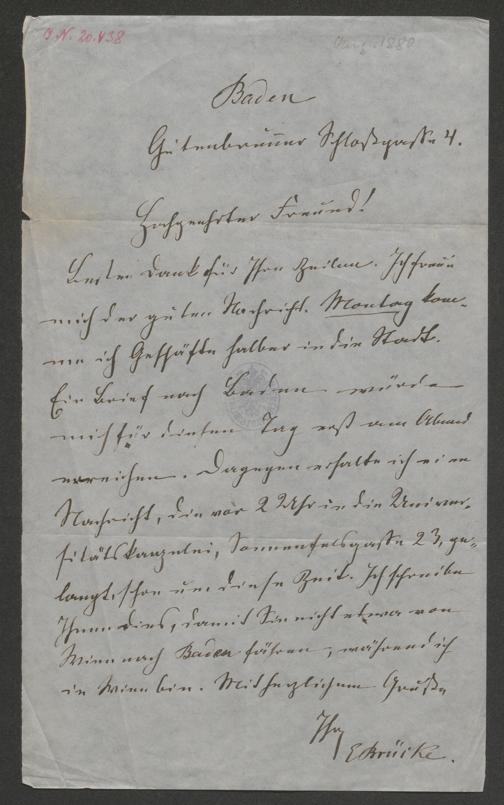 I. N. 20.438
1880
Baden
Gutenbrunner Schloßgasse 4.
Hochgeehrter Freund!
Besten Dank für Ihre Zeilen. Ich freue
mich der guten Nachricht. Montag kom-
me ich Geschäfte halber in die Stadt.
Ein Brief nach Baden würde
mich für diesen Tag erst am Abend
erreichen. Dagegen erhalte ich eine
Nachricht, die vor 2 Uhr in die Univer-
sitätskanzlei, Sonnenfelsgasse 23, ge-
langt, schon um diese Zeit. Ich schreibe
Ihnen dies, damit Sie nicht etwa von
Wien nach Baden fahren, während ich
in Wien bin. Mit herzlichem Gruße
Ihr
EBrücke.